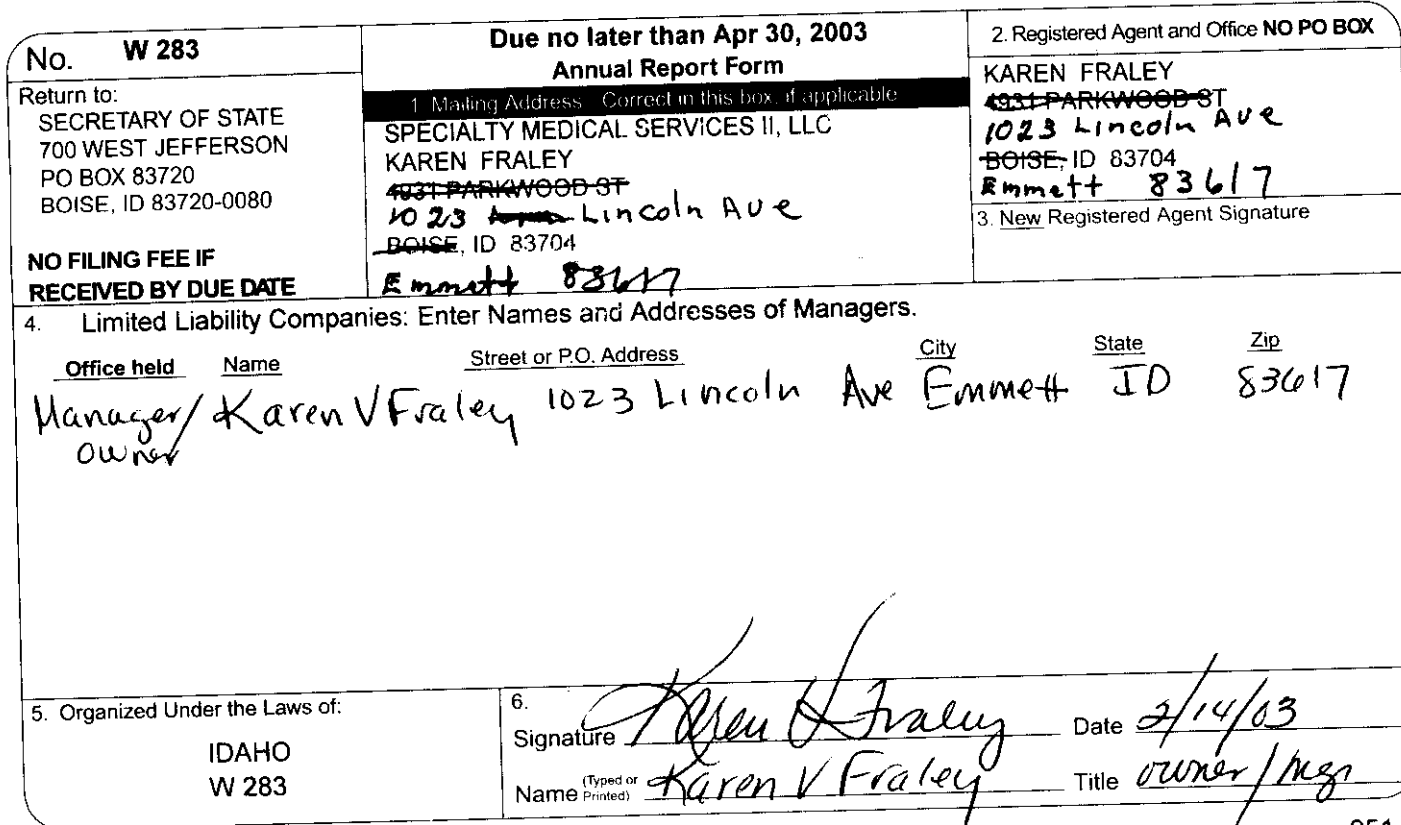 No. W 283
Return to:
SECRETARY OF STATE
700 WEST JEFFERSON
PO BOX 83720
BOISE, ID 83720-0080
NO FILING FEE IF
RECEIVED BY DUE DATE
Due no later than Apr 30, 2003
Annual Report Form
1. Mailing Address Correct in this box, if applicable
SPECIALTY MEDICAL SERVICES II, LLC
KAREN FRALEY
4931 PARKWOOD ST
1023 Lincoln Ave
BOISE, ID 83704
Emmett 83617
2. Registered Agent and Office NO PO BOX
KAREN FRALEY
4931 PARKWOOD ST
1023 Lincoln Ave
BOISE, ID 83704
Emmett 83617
3. New Registered Agent Signature
4. Limited Liability Companies: Enter Names and Addresses of Managers.
Office held Name Street or P.O. Address City State Zip
Manager/ Karen V Fraley 1023 Lincoln Ave Emmett ID 83617
owner
5. Organized Under the Laws of:
IDAHO
W 283
6.
Signature Karen V Fraley Date 2/14/03
Name (Typed or Printed) Karen V Fraley Title owner/mgr